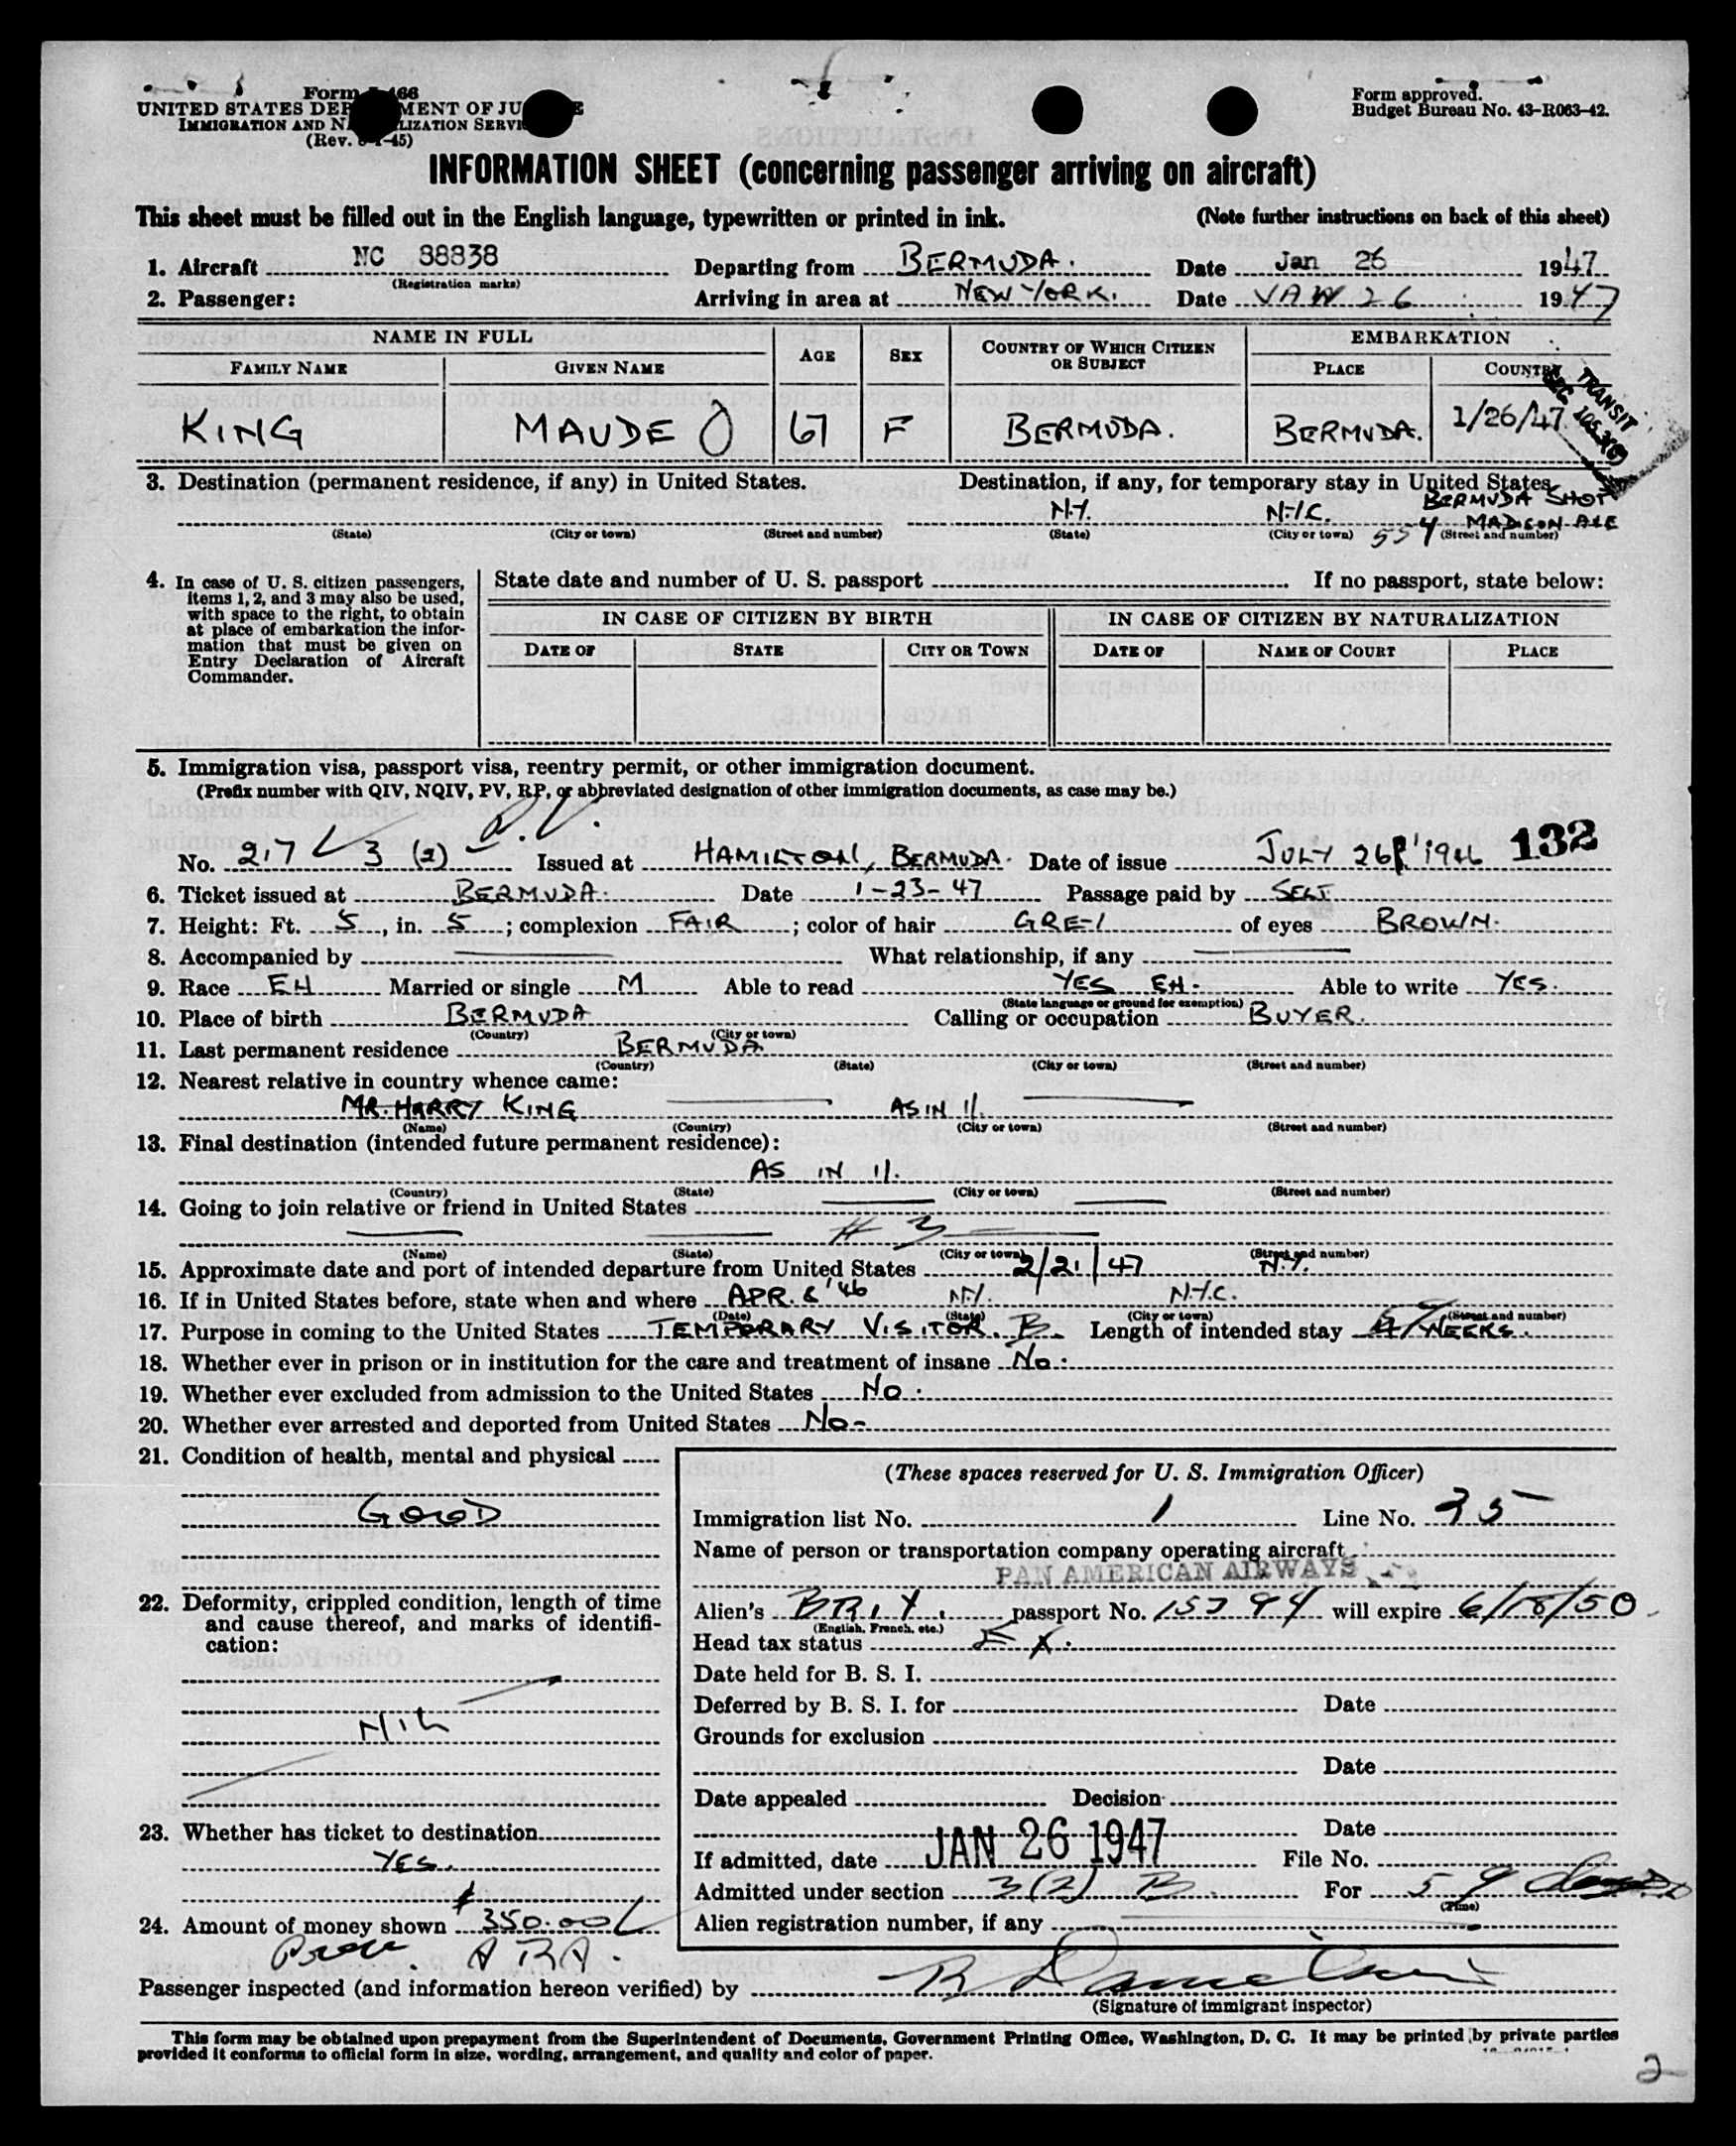 Form 466
UNITED STATES DEPARTMENT OF JUSTICE
IMMIGRATION AND NATURALIZATION SERVICE
(Rev. 45)
Form approved.
Budget Bureau No. 43-R063-42.
INFORMATION SHEET (concerning passenger arriving on aircraft)
This sheet must be filled out in the English language, typewritten or printed in ink. (Note further instructions on back of this sheet)
1. Aircraft NC 88838 Departing from BERMUDA. Date Jan 26 1947
(Registration marks)
2. Passenger: Arriving in area at NEW YORK. Date JAN 26 1947
NAME IN FULL AGE SEX COUNTRY OF WHICH CITIZEN OR SUBJECT EMBARKATION
FAMILY NAME GIVEN NAME PLACE COUNTRY
TRANSIT
SEC 105.3(6)
KING MAUDE O 67 F BERMUDA. BERMUDA. 1/26/47
3. Destination (permanent residence, if any) in United States. Destination, if any, for temporary stay in United States
BERMUDA SHOP
N.Y. N.Y.C. 554 MADISON AVE
(State) (City or town) (Street and number) (State) (City or town) (Street and number)
4. In case of U. S. citizen passengers, items 1, 2, and 3 may also be used, with space to the right, to obtain at place of embarkation the information that must be given on Entry Declaration of Aircraft Commander.
State date and number of U. S. passport If no passport, state below:
IN CASE OF CITIZEN BY BIRTH IN CASE OF CITIZEN BY NATURALIZATION
DATE OF STATE CITY OR TOWN DATE OF NAME OF COURT PLACE
5. Immigration visa, passport visa, reentry permit, or other immigration document.
(Prefix number with QIV, NQIV, PV, RP, or abbreviated designation of other immigration documents, as case may be.)
No. 217 3 (2) P.V. Issued at HAMILTON, BERMUDA. Date of issue JULY 26 1946 132
6. Ticket issued at BERMUDA. Date 1-23-47 Passage paid by SELF
7. Height: Ft. 5, in. 5; complexion FAIR; color of hair GREY of eyes BROWN.
8. Accompanied by What relationship, if any
9. Race EH Married or single M Able to read YES EH. Able to write YES.
(State language or ground for exemption)
10. Place of birth BERMUDA Calling or occupation BUYER.
(Country) (City or town)
11. Last permanent residence BERMUDA
(Country) (State) (City or town) (Street and number)
12. Nearest relative in country whence came:
MR. HARRY KING AS IN 11.
(Name) (Country) (City or town) (Street and number)
13. Final destination (intended future permanent residence):
AS IN 11.
(Country) (State) (City or town) (Street and number)
14. Going to join relative or friend in United States
# 3
(Name) (State) (City or town) (Street and number)
15. Approximate date and port of intended departure from United States 2/21/47 N.Y.
16. If in United States before, state when and where APR. & '46 N.Y. N.Y.C.
(Date) (State) (City or town) (Street and number)
17. Purpose in coming to the United States TEMPORARY VISITOR. B Length of intended stay WEEKS.
18. Whether ever in prison or in institution for the care and treatment of insane No.
19. Whether ever excluded from admission to the United States No.
20. Whether ever arrested and deported from United States No-
21. Condition of health, mental and physical
GOOD
22. Deformity, crippled condition, length of time and cause thereof, and marks of identification:
NIL
23. Whether has ticket to destination
YES.
24. Amount of money shown $350.00
(These spaces reserved for U. S. Immigration Officer)
Immigration list No. 1 Line No. 35
Name of person or transportation company operating aircraft
PAN AMERICAN AIRWAYS
Alien's BRIT. passport No. 15794 will expire 6/18/50
(English, French, etc.)
Head tax status EX.
Date held for B. S. I.
Deferred by B. S. I. for Date
Grounds for exclusion
Date
Date appealed Decision
Date
If admitted, date JAN 26 1947 File No.
Admitted under section 3(2) B. For 59 days
(Time)
Alien registration number, if any
Passenger inspected (and information hereon verified) by
(Signature of immigrant inspector)
This form may be obtained upon prepayment from the Superintendent of Documents, Government Printing Office, Washington, D. C. It may be printed by private parties
provided it conforms to official form in size, wording, arrangement, and quality and color of paper.
2